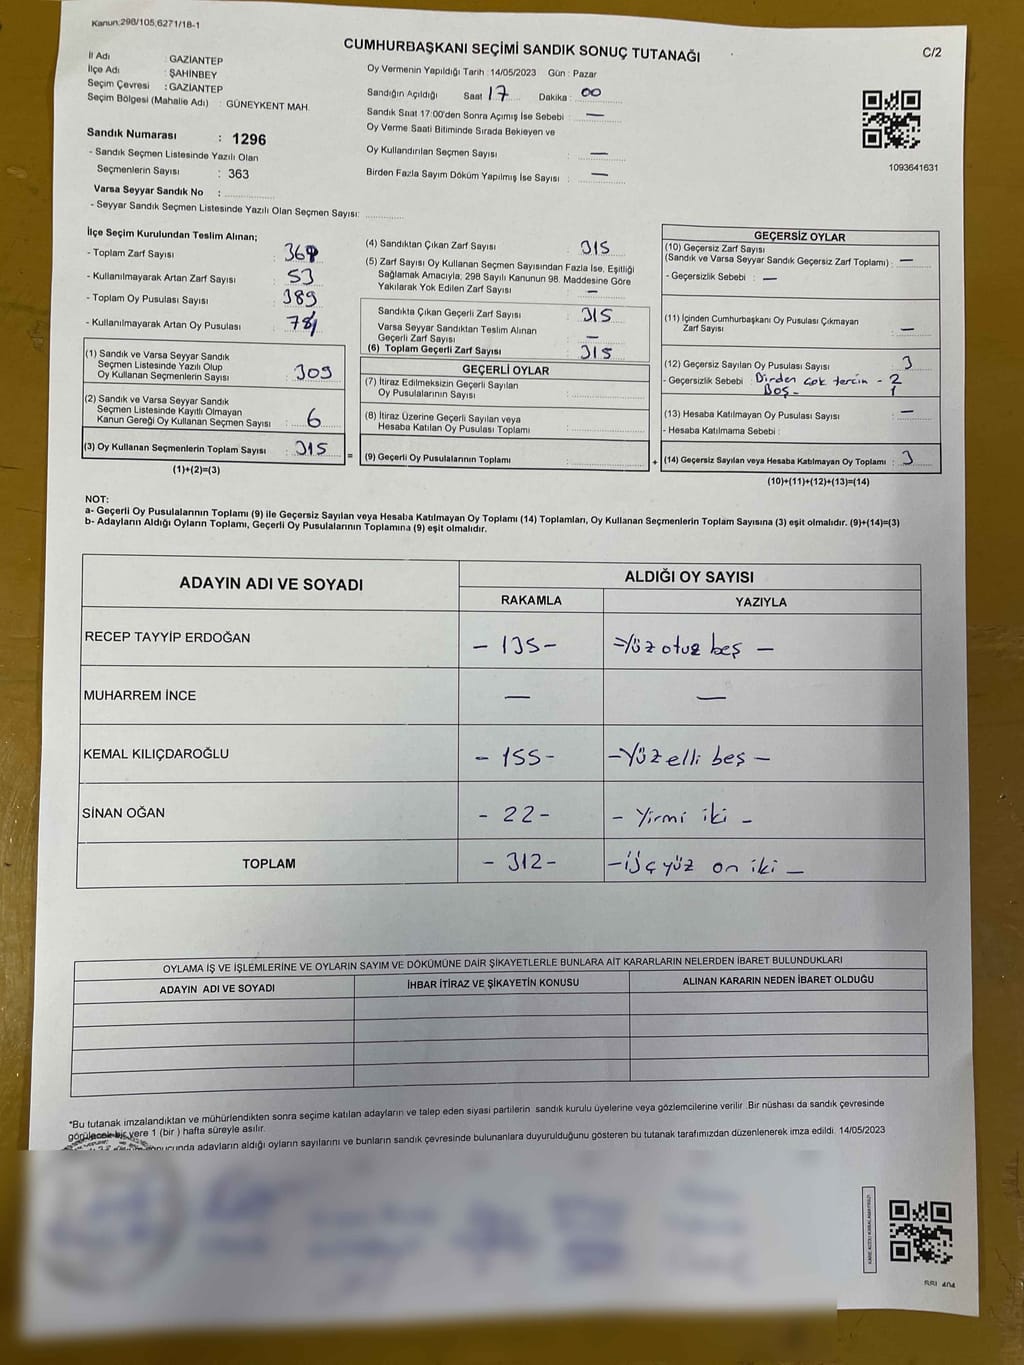 Kanun:298/105,6271/18-1
CUMHURBAŞKANI SEÇİMİ SANDIK SONUÇ TUTANAĞI
C/2
İl Adı : GAZİANTEP
İlçe Adı : ŞAHİNBEY
Seçim Çevresi : GAZİANTEP
Seçim Bölgesi (Mahalle Adı) : GÜNEYKENT MAH.
Sandık Numarası : 1296
- Sandık Seçmen Listesinde Yazılı Olan
Seçmenlerin Sayısı : 363
Varsa Seyyar Sandık No :
- Seyyar Sandık Seçmen Listesinde Yazılı Olan Seçmen Sayısı:
Oy Vermenin Yapıldığı Tarih : 14/05/2023 Gün : Pazar
Sandığın Açıldığı Saat 17 Dakika : 00
Sandık Saat 17:00'den Sonra Açımış İse Sebebi : —
Oy Verme Saati Bitiminde Sırada Bekleyen ve
Oy Kullandırılan Seçmen Sayısı : —
Birden Fazla Sayım Döküm Yapılmış İse Sayısı : —
1093641631
İlçe Seçim Kurulundan Teslim Alınan;
- Toplam Zarf Sayısı
- Kullanılmayarak Artan Zarf Sayısı : 53
- Toplam Oy Pusulası Sayısı : 389
- Kullanılmayarak Artan Oy Pusulası
(1) Sandık ve Varsa Seyyar Sandık
Seçmen Listesinde Yazılı Olup
Oy Kullanan Seçmenlerin Sayısı : 309
(2) Sandık ve Varsa Seyyar Sandık
Seçmen Listesinde Kayıtlı Olmayan
Kanun Gereği Oy Kullanan Seçmen Sayısı : 6
(3) Oy Kullanan Seçmenlerin Toplam Sayısı : 315
(1)+(2)=(3)
(4) Sandıktan Çıkan Zarf Sayısı : 315
(5) Zarf Sayısı Oy Kullanan Seçmen Sayısından Fazla İse, Eşitliği
Sağlamak Amacıyla, 298 Sayılı Kanunun 98. Maddesine Göre
Yakılarak Yok Edilen Zarf Sayısı : —
Sandıkta Çıkan Geçerli Zarf Sayısı : 315
Varsa Seyyar Sandıktan Teslim Alınan
Geçerli Zarf Sayısı : —
(6) Toplam Geçerli Zarf Sayısı : 315
GEÇERLİ OYLAR
(7) İtiraz Edilmeksizin Geçerli Sayılan
Oy Pusulalarının Sayısı :
(8) İtiraz Üzerine Geçerli Sayılan veya
Hesaba Katılan Oy Pusulası Toplamı :
= (9) Geçerli Oy Pusulalarının Toplamı : +
GEÇERSİZ OYLAR
(10) Geçersiz Zarf Sayısı
(Sandık ve Varsa Seyyar Sandık Geçersiz Zarf Toplamı) : —
- Geçersizlik Sebebi : —
(11) İçinden Cumhurbaşkanı Oy Pusulası Çıkmayan
Zarf Sayısı : —
(12) Geçersiz Sayılan Oy Pusulası Sayısı : 3
- Geçersizlik Sebebi : Birden çok tercih - 2
Boş - 1
(13) Hesaba Katılmayan Oy Pusulası Sayısı : —
- Hesaba Katılmama Sebebi :
(14) Geçersiz Sayılan veya Hesaba Katılmayan Oy Toplamı : 3
(10)+(11)+(12)+(13)=(14)
NOT:
a- Geçerli Oy Pusulalarının Toplamı (9) ile Geçersiz Sayılan veya Hesaba Katılmayan Oy Toplamı (14) Toplamları, Oy Kullanan Seçmenlerin Toplam Sayısına (3) eşit olmalıdır. (9)+(14)=(3)
b- Adayların Aldığı Oyların Toplamı, Geçerli Oy Pusulalarının Toplamına (9) eşit olmalıdır.
ADAYIN ADI VE SOYADI ALDIĞI OY SAYISI
RAKAMLA YAZIYLA
RECEP TAYYİP ERDOĞAN - 135 - - Yüz otuz beş -
MUHARREM İNCE — —
KEMAL KILIÇDAROĞLU - 155 - - Yüz elli beş -
SİNAN OĞAN - 22 - - Yirmi iki -
TOPLAM - 312 - - Üç yüz on iki -
OYLAMA İŞ VE İŞLEMLERİNE VE OYLARIN SAYIM VE DÖKÜMÜNE DAİR ŞİKAYETLERLE BUNLARA AİT KARARLARIN NELERDEN İBARET BULUNDUKLARI
ADAYIN ADI VE SOYADI İHBAR İTİRAZ VE ŞİKAYETİN KONUSU ALINAN KARARIN NEDEN İBARET OLDUĞU
*Bu tutanak imzalandıktan ve mühürlendikten sonra seçime katılan adayların ve talep eden siyasi partilerin sandık kurulu üyelerine veya gözlemcilerine verilir. Bir nüshası da sandık çevresinde
görülecek bir yere 1 (bir ) hafta süreyle asılır.
adayların aldığı oyların sayılarını ve bunların sandık çevresinde bulunanlara duyurulduğunu gösteren bu tutanak tarafımızdan düzenlenerek imza edildi. 14/05/2023